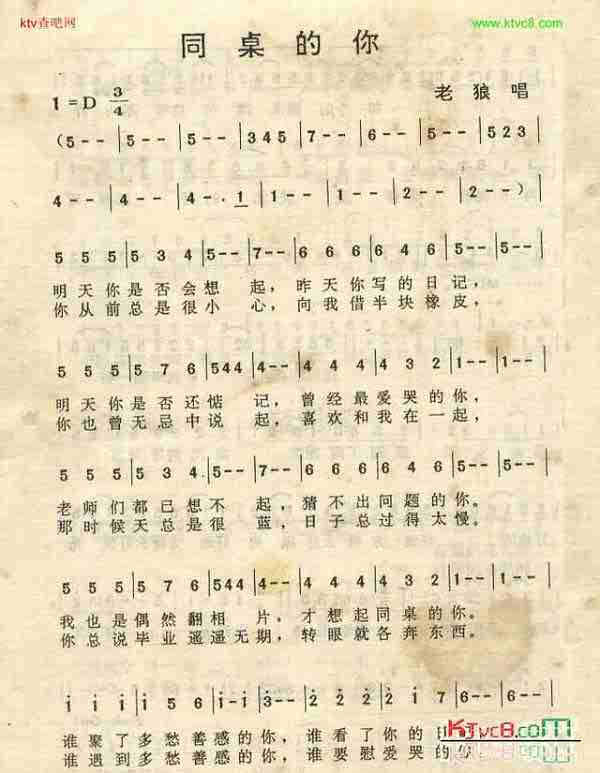 ktv查吧网
www.ktvc8.com
同桌的你
1=D 3/4
老狼 唱
(5-- | 5-- | 5-- | 345 | 7-- | 6-- | 5-- | 523 |
4-- | 4-- | 4-·1 | 1-- | 1-- | 2-- | 2-- )|
5 5 5 | 5 3 4 | 5-- | 7-- | 6 6 6 | 6 4 6 | 5-- | 5-- |
明天你是否会想 起, 昨天你写的日记,
你从前总是很小 心, 向我借半块橡皮,
5 5 5 | 5 7 6 | 544 | 4-- | 4 4 4 | 4 3 2 | 1-- | 1-- |
明天你是否还惦 记, 曾经最爱哭的你,
你也曾无忌中说 起, 喜欢和我在一起,
5 5 5 | 5 3 4 | 5-- | 7-- | 6 6 6 | 6 4 6 | 5-- | 5-- |
老师们都已想不 起, 猜不出问题的你。
那时候天总是很 蓝, 日子总过得太慢。
5 5 5 | 5 7 6 | 544 | 4-- | 4 4 4 | 4 3 2 | 1-- | 1-- |
我也是偶然翻相 片, 才想起同桌的你。
你总说毕业遥遥无期, 转眼就各奔东西。
i i i | i 5 6 | i-i | 3-- | 2 2 2 | 2 i 2 | 6-- | 6-- |
谁聚了多愁善感的你, 谁看了你的日
谁遇到多愁善感的你, 谁要慰爱哭的你。
KTvc8.com